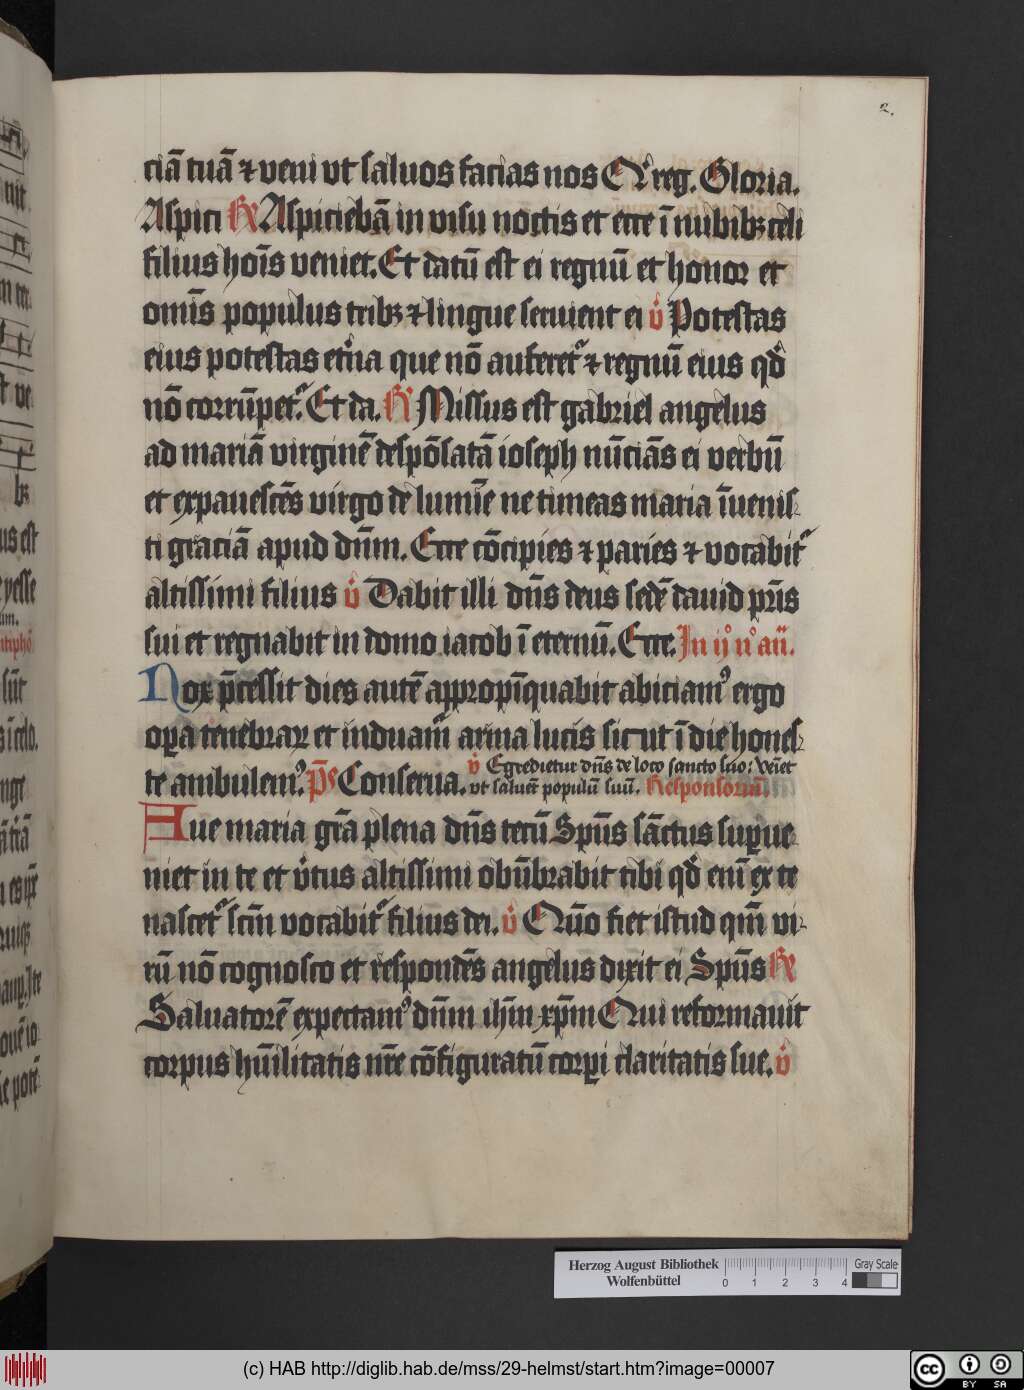 2.
ciā tuā ⁊ veni vt saluos facias nos Qͥ reg. Gloria.
Aspici R̷ Aspiciebā in visu noctis et ecce ī nubibꝫ celi
filius hoīs veniet. Et datū est ei regnū et honor et
omīs populus tribꝫ ⁊ lingue seruient ei v̊ Potestas
eius potestas et̾na que nō auferet᷑ ⁊ regnū eius qđ
nō corrūpet᷑. Et da. R̷ Missus est gabriel angelus
ad mariā virginē despōsatā ioseph nūciās ei verbū
et expauescēs virgo de lumīe ne timeas maria īuenis-
ti graciā apud dn̄m. Ecce cōcipies ⁊ paries ⁊ vocabit᷑
altissimi filius v̊ Dabit illi dn̄s deus sedē dauid pr̄is
sui et regnabit in domo iacob ī eternū. Ecce. In ij° n° an̄.
Nox p̄cessit dies autē appropīquabit abiciam⁹ ergo
oꝑa tenebraꝝ et induam̄ arma lucis sicut ī die hones-
te ambulem⁹. p̄s Conserua. v̊ Egredietur dn̄s de loco sancto suo: Veīet
vt saluet populū suū. Responsoriū.
Aue maria gr̄a plena dn̄s tecū Spūs sāctus suꝑue-
niet in te et v̾tus altissimi obūbrabit tibi qđ enī ex te
nascet᷑ scīm vocabit᷑ filius dei. v̊ Quō fiet istud qm̄ vi-
rū nō cognosco et respondēs angelus dixit ei Spūs R̷
Saluatorē expectam⁹ dn̄m ih̄m xp̄m Qui reformauit
corpus hūilitatis nr̄e cōfiguratū corpi claritatis sue. v̊
Herzog August Bibliothek
Wolfenbüttel
0 1 2 3 4
Gray Scale
(c) HAB http://diglib.hab.de/mss/29-helmst/start.htm?image=00007
cc BY SA